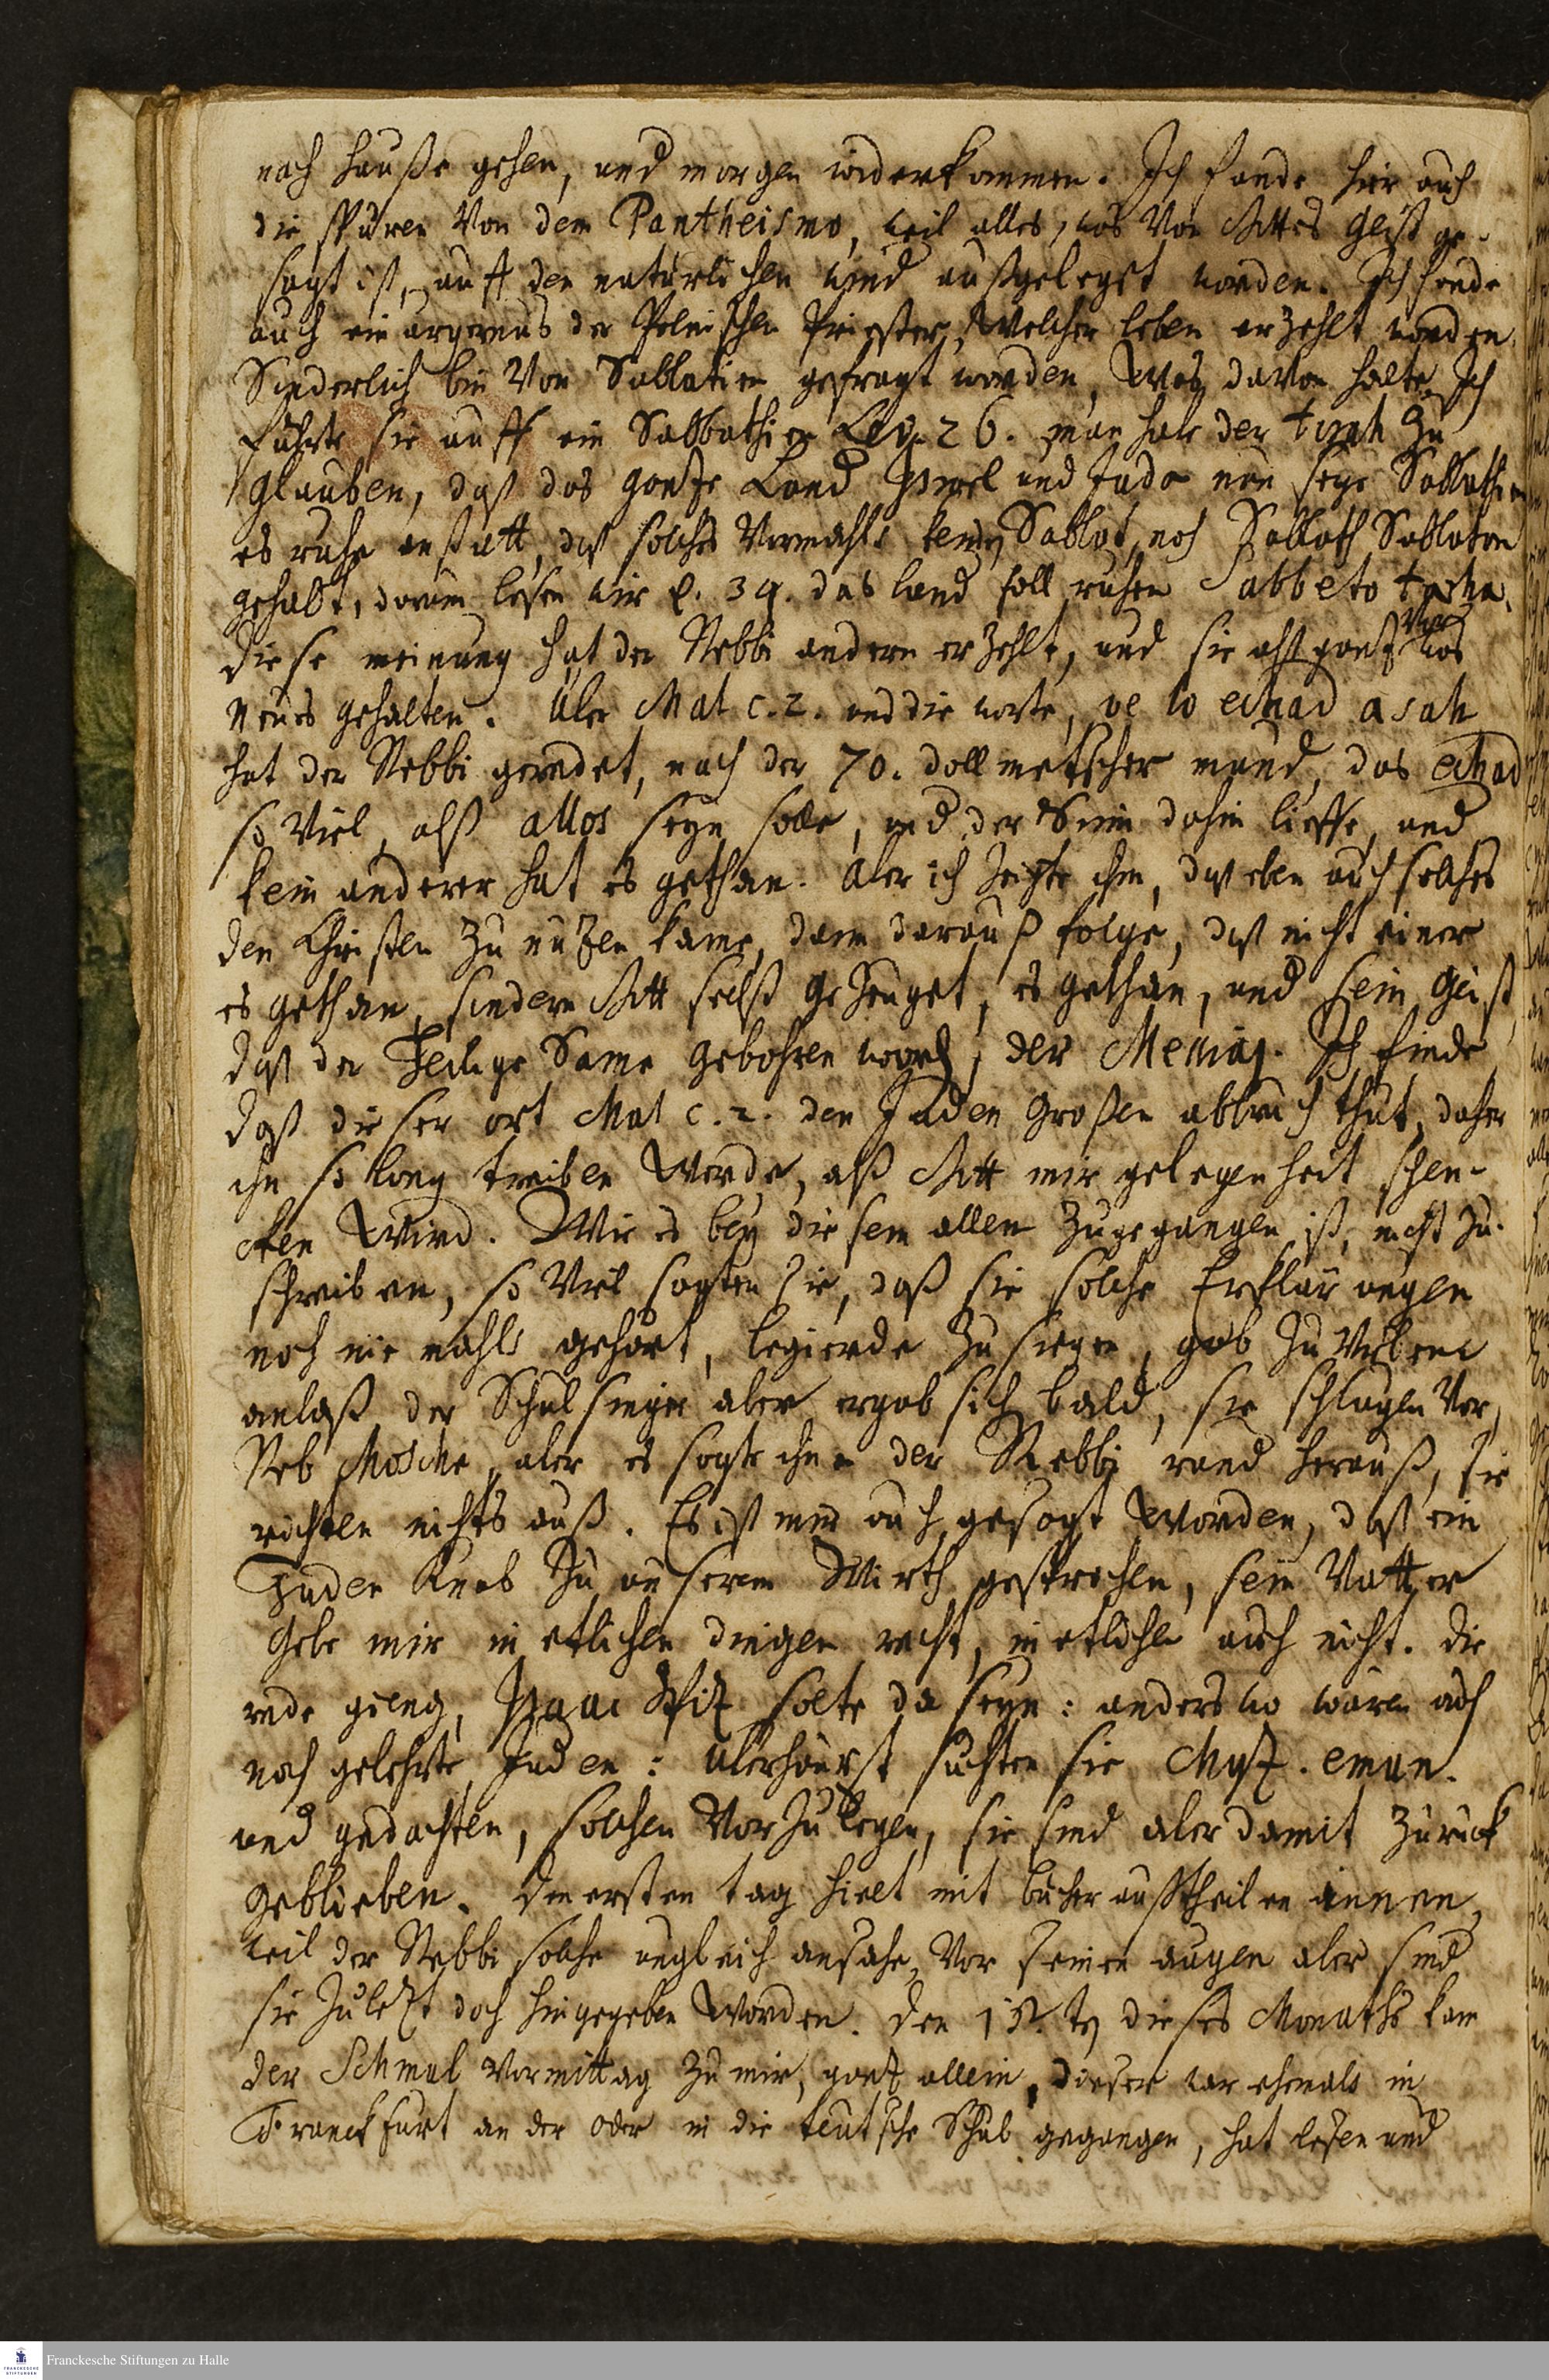 nach hauße gehen, und morgen widerkommen. Ich fande hier auch
die spuren Von dem Pantheismo, weil alles, was Von Gottes Geist ge-
sagt ist, auff den natürlichen wind außgeleget worden. Ich fande
auch ein argernus der Polnischen Priester, Welcher leben erzehlt worden.
Sonderlich bin Von Sabbatien gefragt worden, Was davon halte, Ich
führte sie auff ein Sabbathier Lev. 26. man habe der torah zu
glauben, daß das gantze Land Israel und Juda nun seye Sabbathier
es ruhe anstatt, daß solches Vormahls keinen Sabbat, noch Sabbath Sabbaton
gehabt, darum lesen wir v. 34. das land soll ruhen Sabbeto techa.
diese meinung hat der Rebbi andern erzehlt, und sie alß gantz Vor was
neues gehalten. Über Mal c. 2. und die worte, ve lo echad asah
hat der Rebbi geredet, nach der 70. dollmetscher mund, das echad
so Viel, alß allos seyn solle, und der Sinn dahin lieffe, und
kein anderer hat es gethan. Aber ich zeigte ihm, daß eben auch solches
den Christen zu nutzen kame, dann darauß folge, daß nicht einer
es gethan, sondern Gott selbst gezeuget, es gethan, und sein Geist,
daß der Heilige Same gebohren word, der Messias. Ich finde
daß dieser ort Mal c. 2. den Juden großen abbruch thut, daher
ihn so lang treiben Werde, alß Gott mir gelegenheit schen-
cken Wird. Wie es bey diesem allem zugegangen ist, nicht zu
schreiben, so Viel sagten sie, daß sie solche Erklärungen
noch niemahls gehört, begierde zu siegen, gab zu Vielem
anlaß, der Schulsinger aber ergab sich bald, sie schlugen Vor
Reb Mosche, aber es sagte ihnen der Rebbi rund herauß, sie
richten nichts auß. Es ist mir auch gesagt Worden, daß ein
Juden Knab zu unserem Wirth gesprochen, sein Vatter
gebe mir in etlichen dingen recht, in etlichen auch nicht. die
rede gieng, Isaac solte da seyn: anderswo wären auch
noch gelehrte Juden: suchten sie emun.
und gedachten, solchen Vorzulegen, sie sind aber damit zurück
geblieben. Den ersten tag hielt mit bücher außtheilen innen,
weil der Rebbi solche ungleich ansahe, Vor seinen augen aber sind
sie zuletzt doch hingegeben Worden. den 15. dieses Monaths kam
der Schmul Vormittag zu mir, gantz allein, dieser war ehemals in
Franckfurt an der Oder in die teutsche Schul gegangen, hat lesen und
Franckesche Stiftungen zu Halle